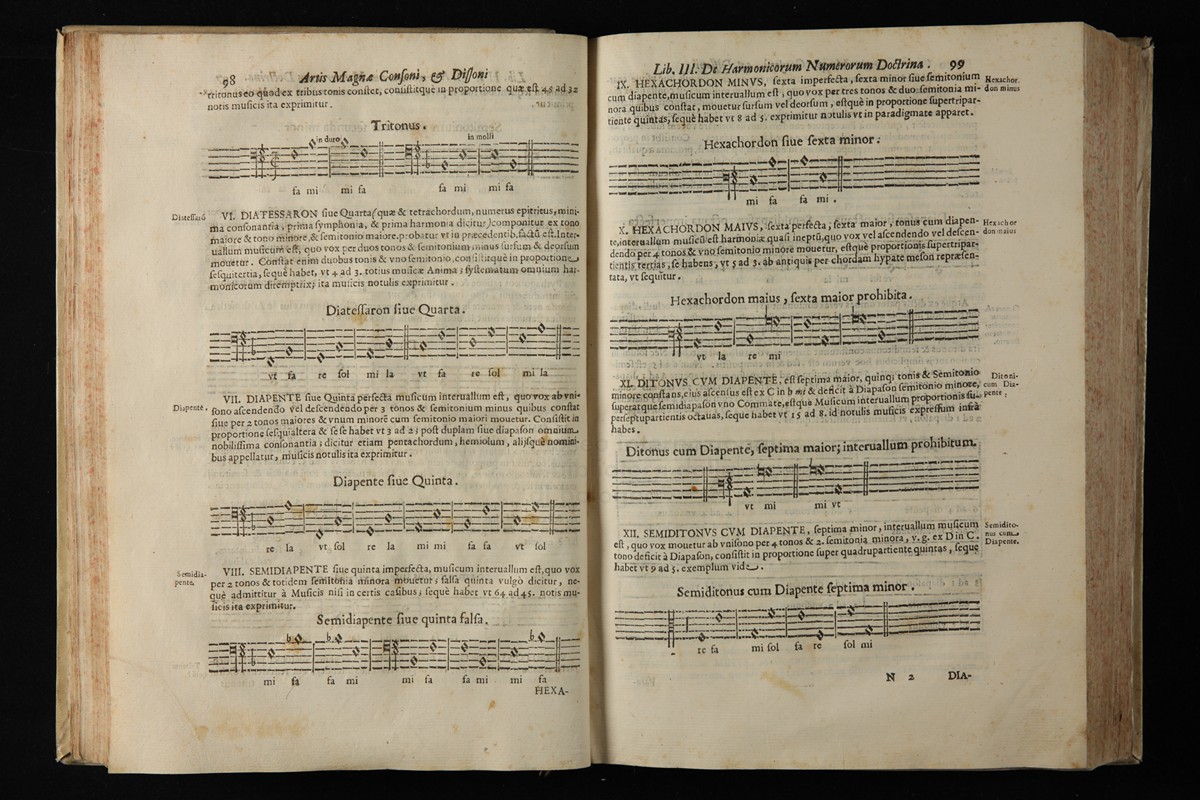 98 Artis Magnæ Consoni, & Dissoni
tritonus eo quod ex tribus tonis constet, consistitquè in proportione quæ est 45 ad 32
notis musicis ita exprimitur.
Tritonus.
in duro in molli
fa mi mi fa fa mi mi fa
Diatessarō
VI. DIATESSARON siue Quarta (quæ & tetrachordum, numerus epitritus, mini-
ma consonantia, prima symphonia, & prima harmonia dicitur) componitur ex tono
maiore & tono minore, & semitonio maiore, probatur vt in præcedentib. factū est. Inter-
uallum musicum est, quo vox per duos tonos & semitonium minus sursum & deorsum
mouetur. Constat enim duobus tonis & vno semitonio, consistitquè in proportione
sesquitertia, sequè habet, vt 4 ad 3. totius musicæ Anima; systematum omnium har-
monicorum diremptrix; ita musicis notulis exprimitur.
Diatessaron siue Quarta.
vt fa re sol mi la vt fa re sol mi la
Diapente.
VII. DIAPENTE siue Quinta perfecta musicum interuallum est, quo vox ab vni-
sono ascendendo vel descendendo per 3 tonos & semitonium minus quibus constat
siue per 2 tonos maiores & vnum minorē cum semitonio maiori mouetur. Consistit in
proportione sesquialtera & se se habet vt 3 ad 2; post duplam siue diapason omnium
nobilissima consonantia; dicitur etiam pentachordum, hemiolum, alijsquè nomini-
bus appellatur, musicis notulis ita exprimitur.
Diapente siue Quinta.
re la vt sol re la mi mi fa fa vt sol
Semidia-
pente.
VIII. SEMIDIAPENTE siue quinta imperfecta, musicum interuallum est, quo vox
per 2 tonos & totidem semitonia minora mouetur; falsa quinta vulgò dicitur, ne-
què admittitur à Musicis nisi in certis casibus; sequè habet vt 64 ad 45. notis mu-
sicis ita exprimitur.
Semidiapente siue quinta falsa.
b b b
mi fa fa mi mi fa fa mi mi fa
HEXA-
Lib. III. De Harmonicorum Numerorum Doctrina. 99
IX. HEXACHORDON MINVS, sexta imperfecta, sexta minor siue semitonium
cum diapente, musicum interuallum est, quo vox per tres tonos & duo semitonia mi-
nora quibus constat, mouetur sursum vel deorsum, estquè in proportione supertripar-
tiente quintas, sequè habet vt 8 ad 5. exprimitur notulis vt in paradigmate apparet.
Hexachor.
don minus
Hexachordon siue sexta minor.
mi fa fa mi.
X. HEXACHORDON MAIVS, sexta perfecta, sexta maior, tonus cum diapen-
te, interuallum musicū est harmoniæ quasi ineptū, quo vox vel ascendendo vel descen-
dendo per 4 tonos & vno semitonio minore mouetur, estquè proportionis supertripar-
tientis tertias, se habens, vt 5 ad 3. ab antiquis per chordam hypate meson repræsen-
tata, vt sequitur.
Hexachor
don maius
Hexachordon maius, sexta maior prohibita.
vt la re mi
XI. DITONVS CVM DIAPENTE, est septima maior, quinq; tonis & Semitonio
minore constans, eius ascensus est ex C in b mi & deficit à Diapason semitonio minore,
superatque semidiapason vno Commate, estque Musicum interuallum proportionis su-
perseptupartientis octauas, seque habet vt 15 ad 8. id notulis musicis expressum infra
habes.
Ditoni-
cum Dia-
pente;
Ditonus cum Diapente, septima maior; interuallum prohibitum.
vt mi mi vt
XII. SEMIDITONVS CVM DIAPENTE, septima minor, interuallum musicum
est, quo vox mouetur ab vnisono per 4 tonos & 2. semitonia minora, v. g. ex D in C.
tono deficit à Diapason, consistit in proportione super quadrupartiente quintas, sequè
habet vt 9 ad 5. exemplum vide.
Semidito-
nus cum
Diapente.
Semiditonus cum Diapente septima minor.
re fa mi sol fa re sol mi
N 2 DIA-